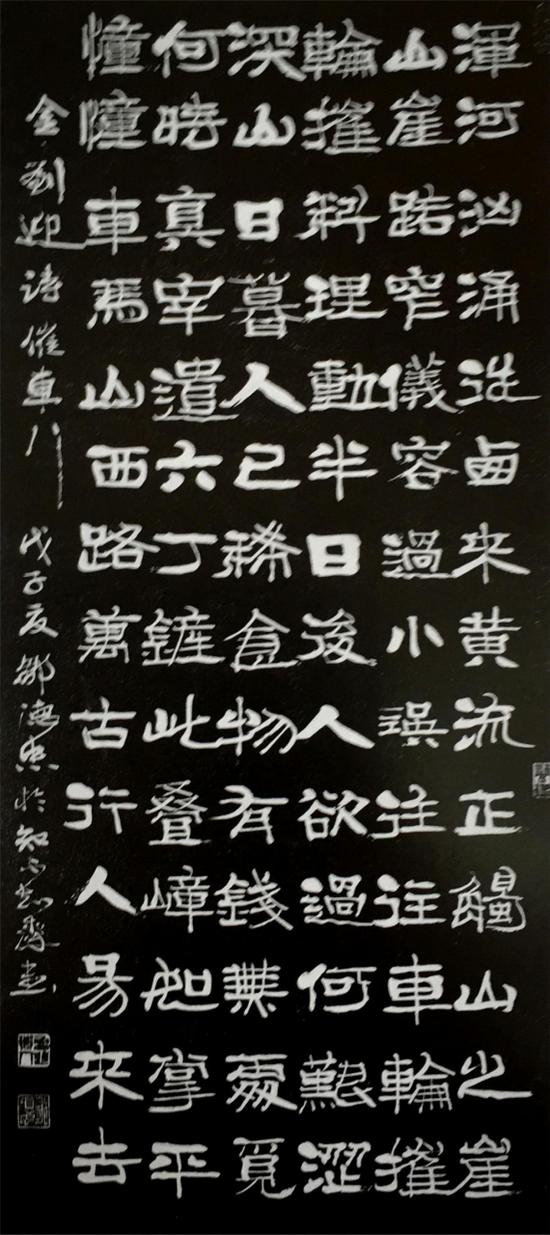 渾河汹涌從卥來黃流正觸山之崖
山崖路窄儀容過小誤往往車輪摧
輪摧料理動半日後人欲過何艱澀
深山日暮人已稀食物有錢無處覓
何時真宰遣六丁鏟此叠嶂如掌平
憧憧車馬山西路萬古行人易來去
金劉迎詩催車行 戊子夏鄒海 於知不 齋